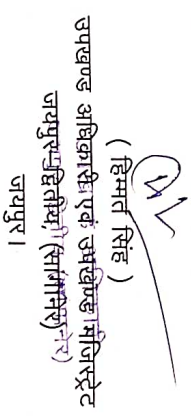 ( हिम्मत सिंह )
उपखण्ड अधिकारी एवं उपखण्ड मजिस्ट्रेट
जयपुर द्वितीय, (सांगानेर)
जयपुर।